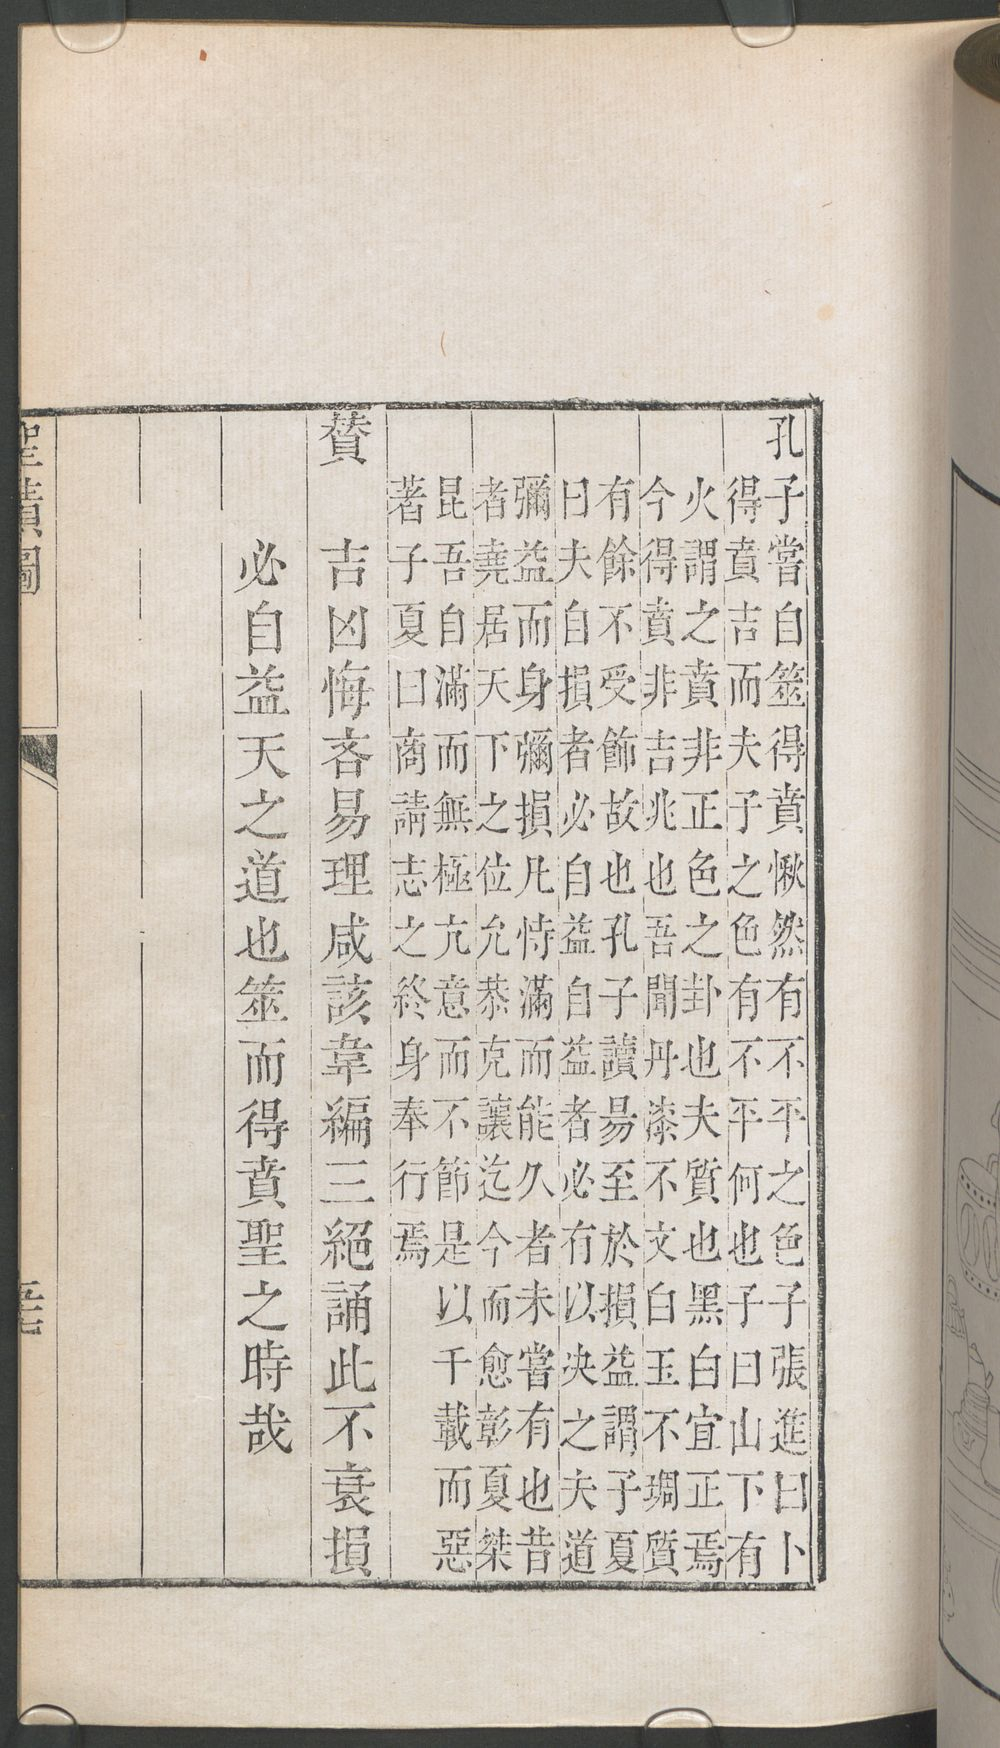 孔子嘗自筮得賁愀然有不平之色子張進曰卜
得賁吉而夫子之色有不平何也子曰山下有
火謂之賁非正色之卦也夫質也黑白宜正焉
今得賁非吉兆也吾聞丹漆不文白玉不琱質
有餘不受飾故也孔子讀易至於損益謂子夏
曰夫自損者必自益自益者必有以决之夫道
彌益而身彌損凡恃滿而能久者未嘗有也昔
者堯居天下之位允恭克讓迄今而愈彰夏桀
昆吾自滿而無極亢意而不節是以千載而惡
著子夏曰商請志之終身奉行焉
賛
吉凶悔吝易理咸該韋編三絕誦此不衰損
必自益天之道也筮而得賁聖之時哉
聖蹟圖